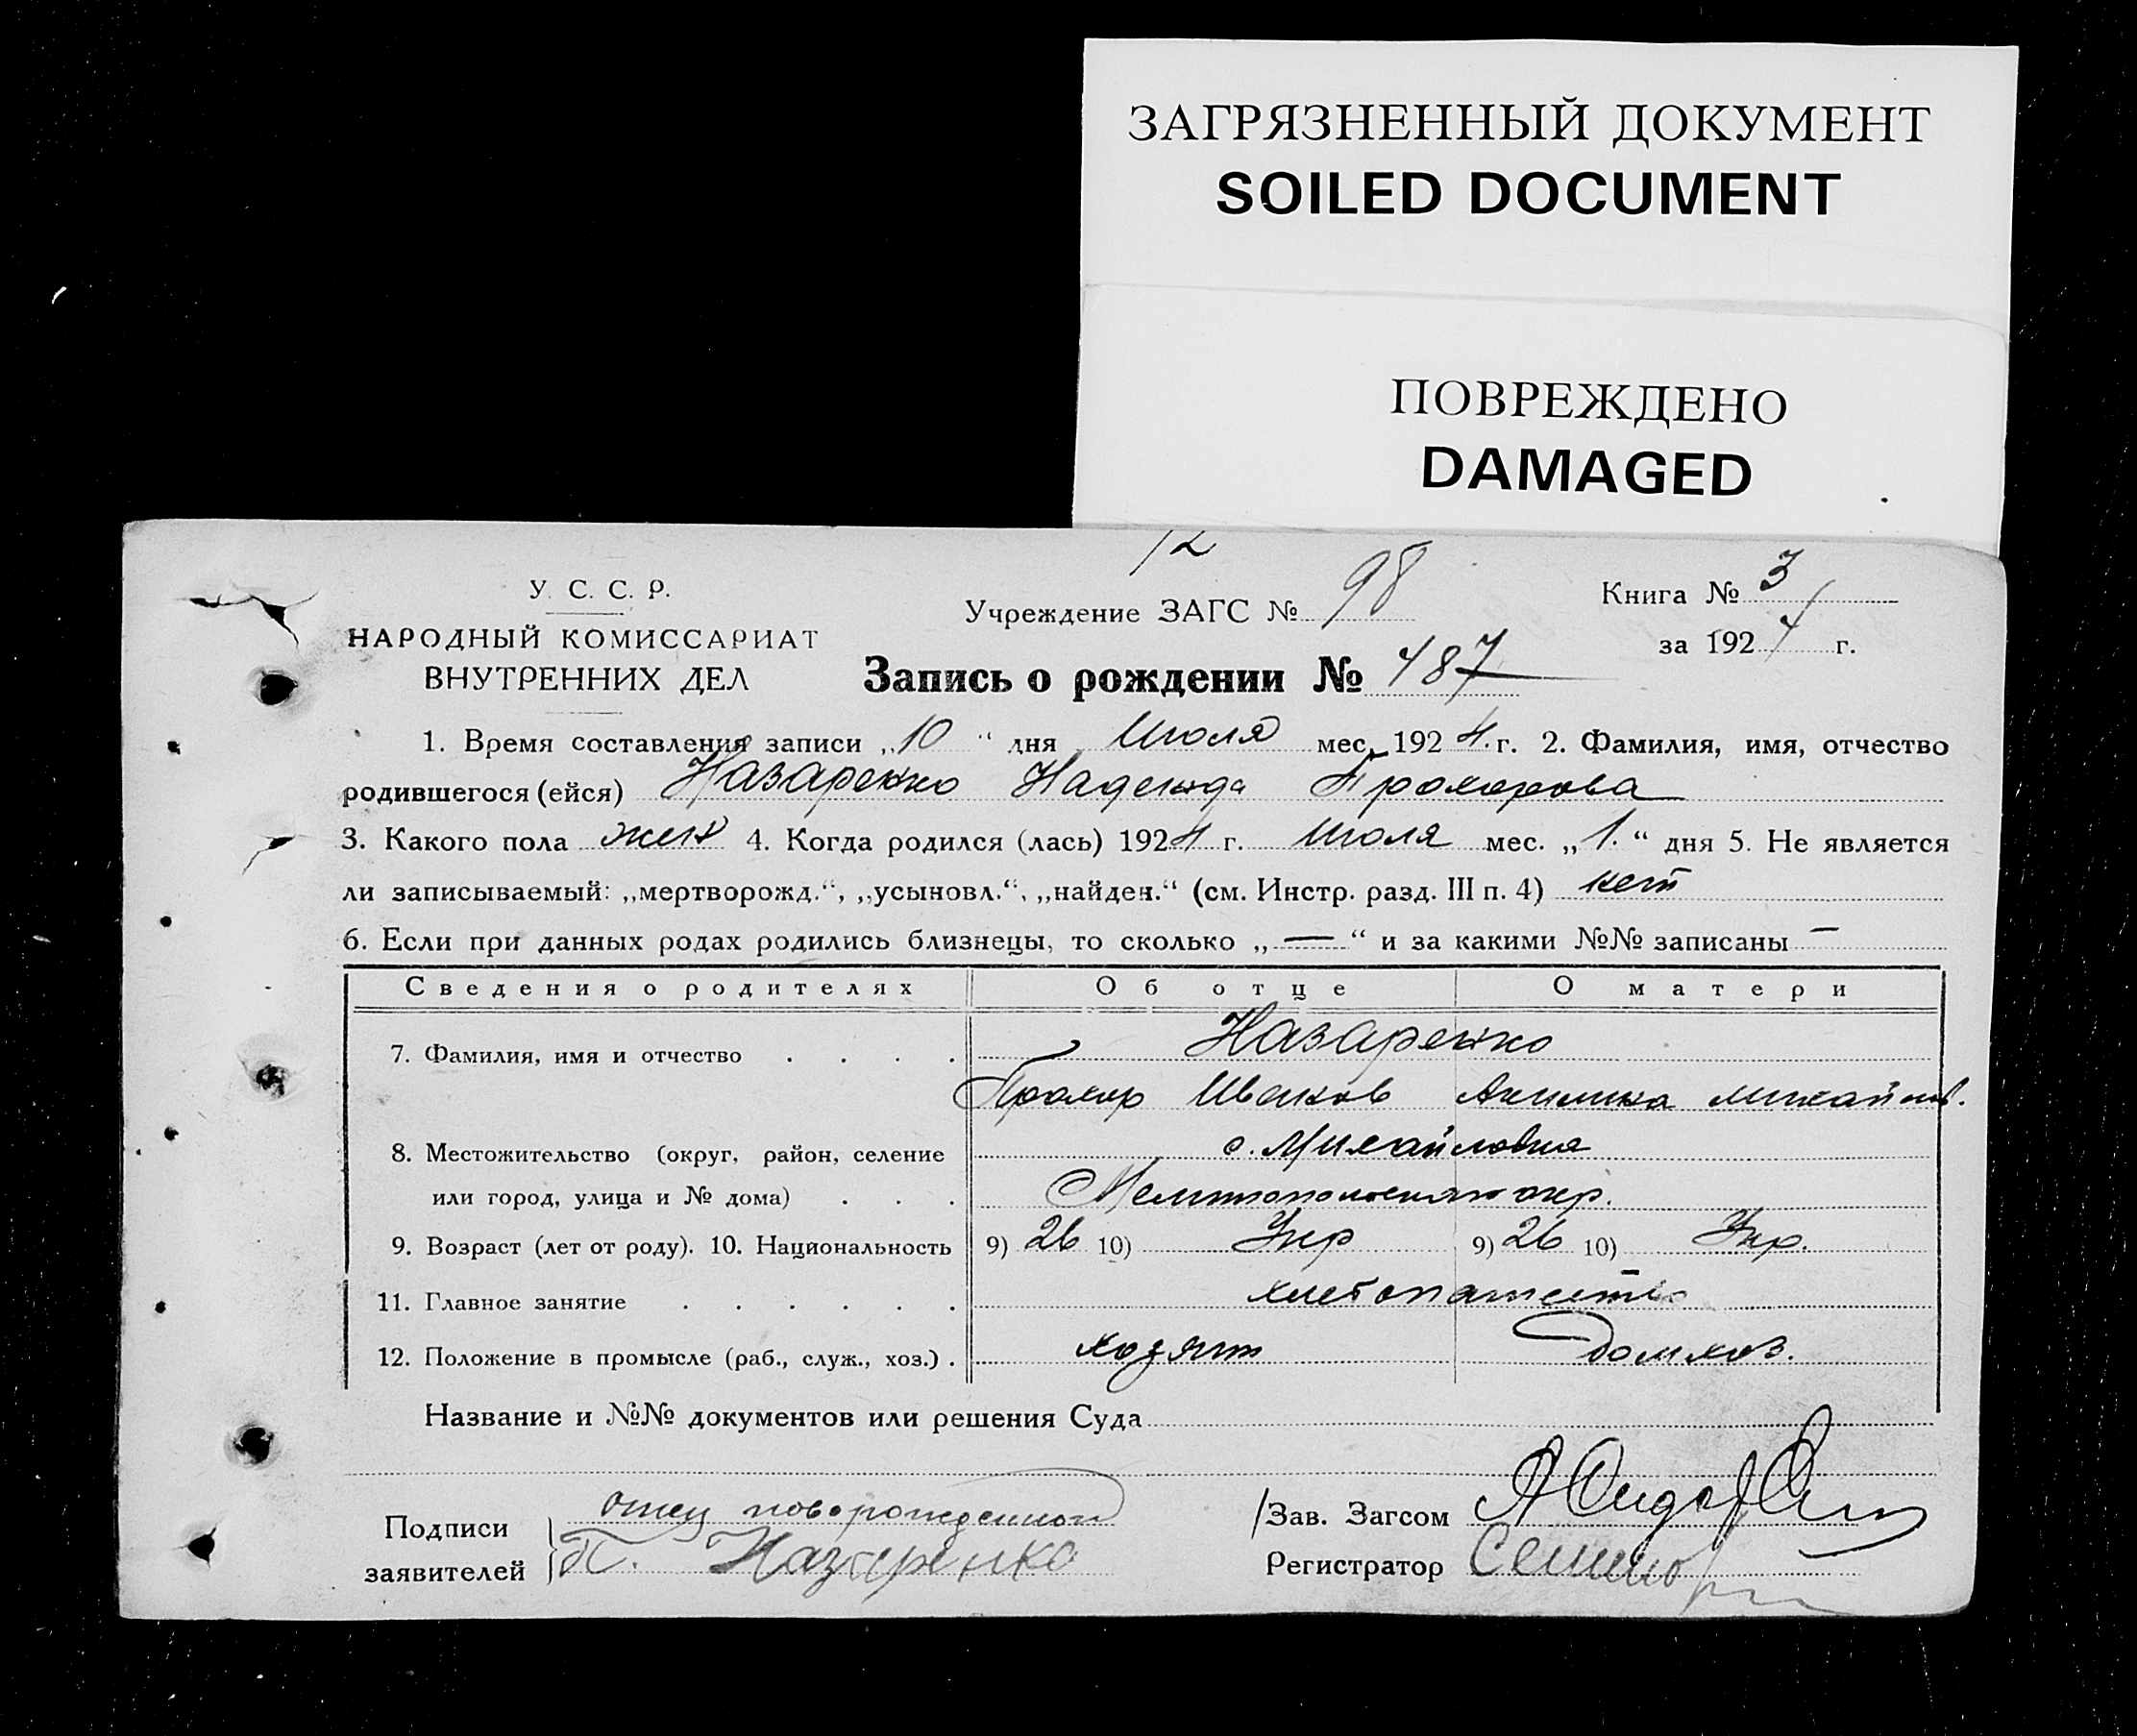 ЗАГРЯЗНЕННЫЙ ДОКУМЕНТ
SOILED DOCUMENT
ПОВРЕЖДЕНО
DAMAGED
12
У. С. С. Р.
НАРОДНЫЙ КОМИССАРИАТ
ВНУТРЕННИХ ДЕЛ
Учреждение ЗАГС № 98
Книга № 3
за 1924 г.
Запись о рождении № 487
1. Время составления записи „10“ дня Июля мес. 1924 г. 2. Фамилия, имя, отчество
родившегося (ейся) Назаренко Надежда Прохорова
3. Какого пола жен 4. Когда родился (лась) 1924 г. Июля мес. „1.“ дня 5. Не является
ли записываемый: „мертворожд.“, „усыновл.“, „найден.“ (см. Инстр. разд. III п. 4) нет
6. Если при данных родах родились близнецы, то сколько „—“ и за какими №№ записаны —
Сведения о родителях Об отце О матери
7. Фамилия, имя и отчество . . . . Назаренко
Прохор Иванов Акилина Михайлов.
8. Местожительство (округ, район, селение с. Михайловка
или город, улица и № дома) . . . Мелитопольского окр.
9. Возраст (лет от роду). 10. Национальность 9) 26 10) Укр 9) 26 10) Укр.
11. Главное занятие . . . . . . хлебопашеств
12. Положение в промысле (раб., служ., хоз.) . хозяин домхоз.
Название и №№ документов или решения Суда
Подписи
заявителей
отец новорожденной
П. Назаренко
Зав. Загсом
Регистратор